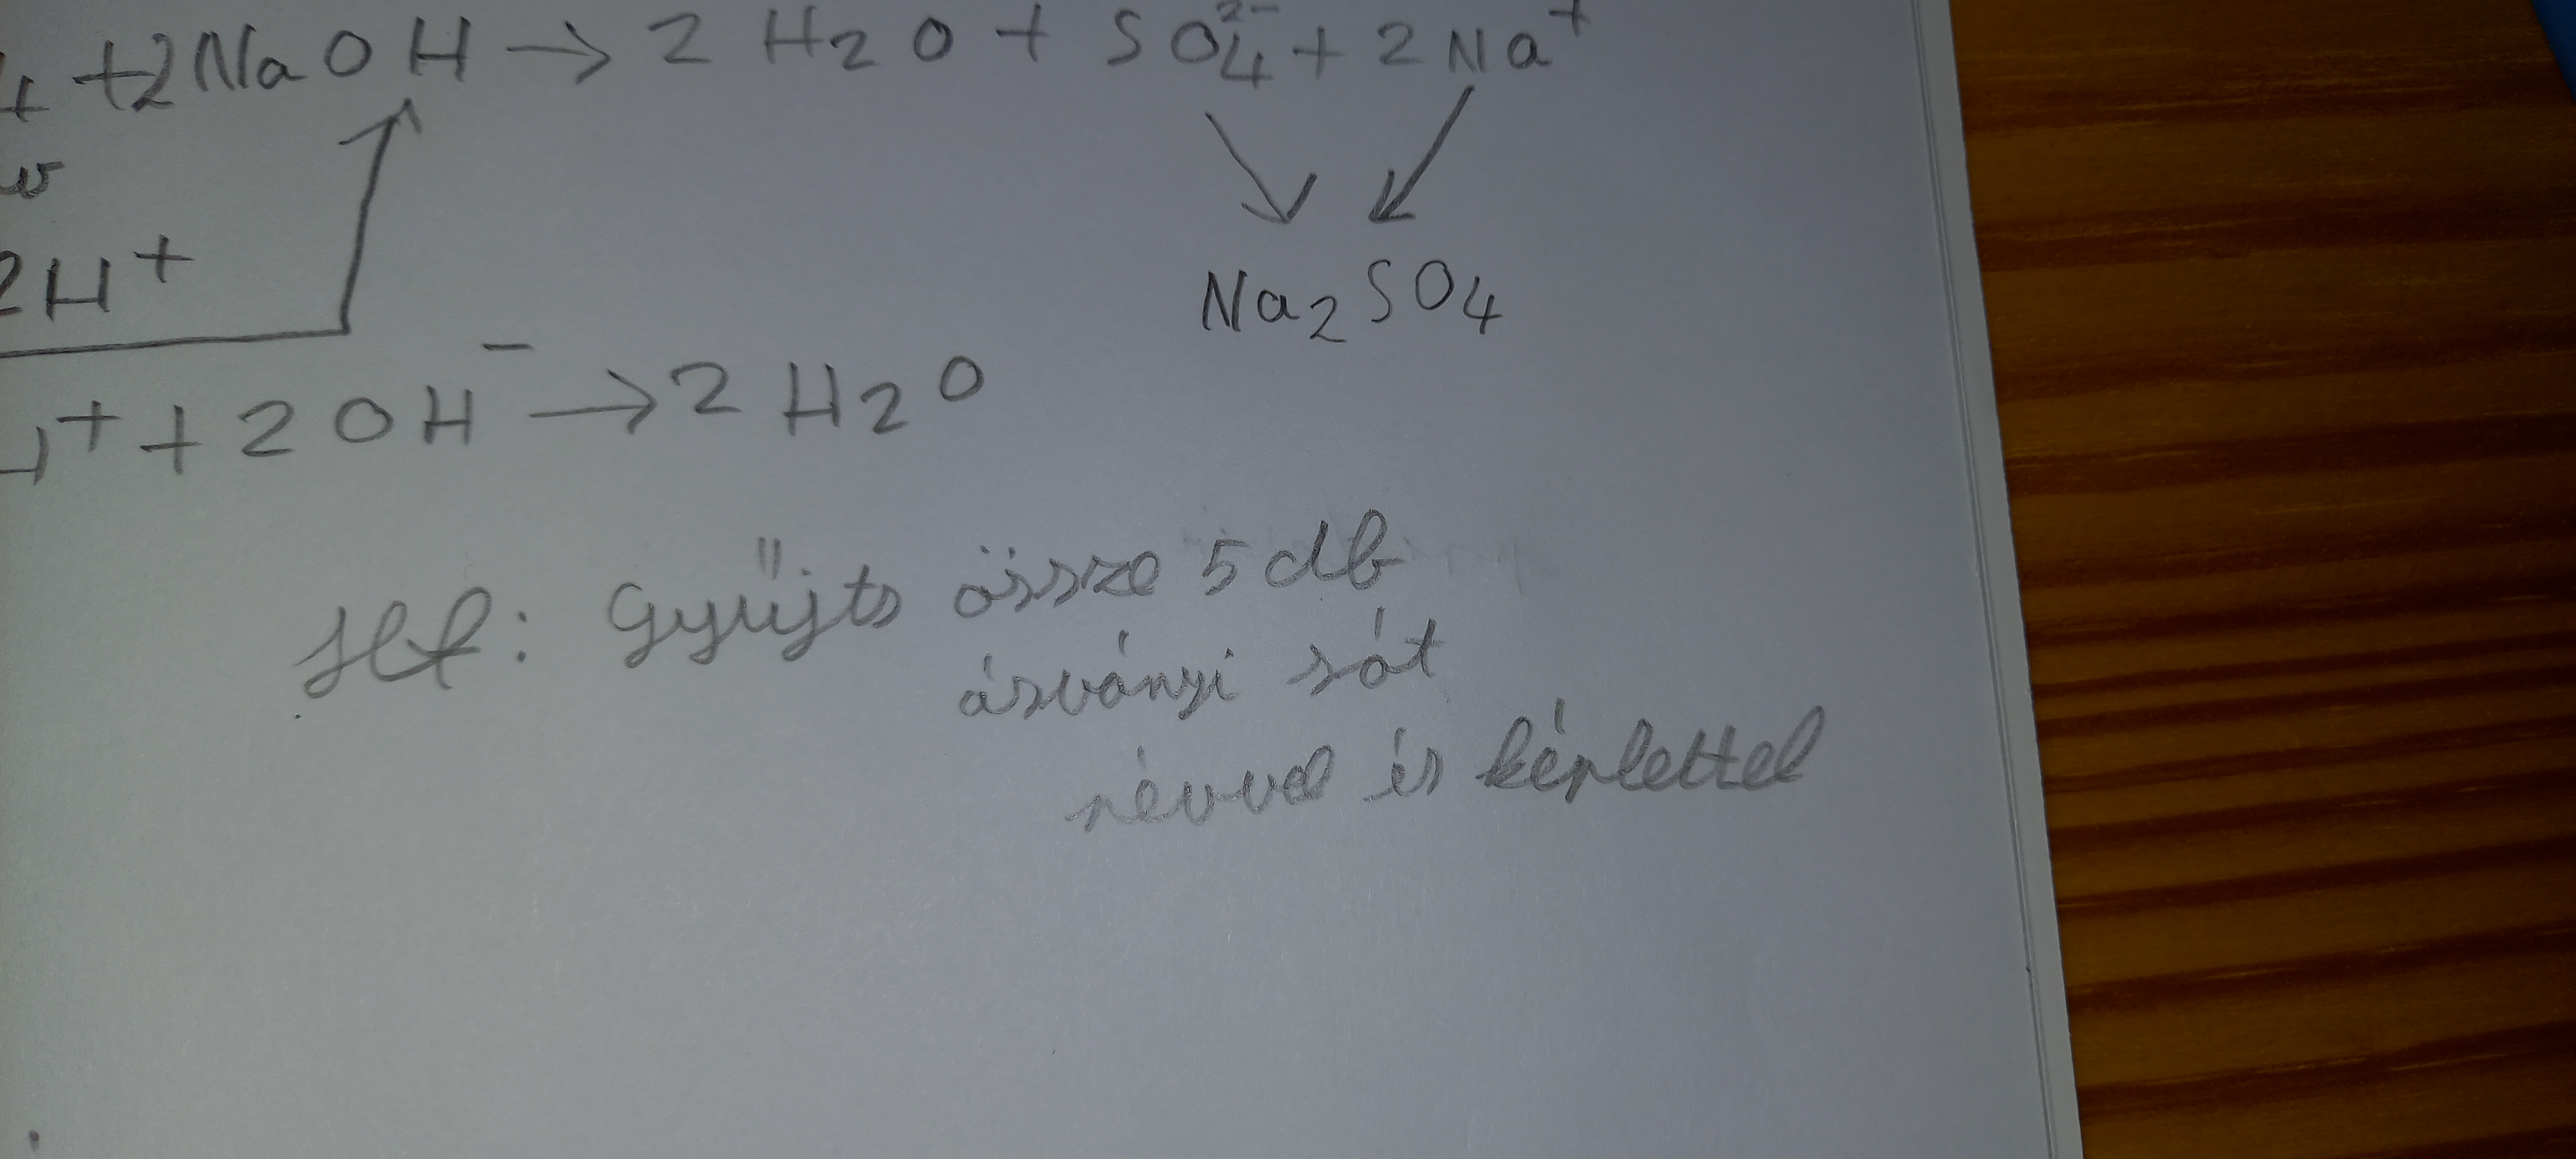 4 + 2NaOH → 2 H2O + SO4²⁻ + 2 Na⁺
2H⁺
Na2SO4
⁺ + 2 OH⁻ → 2 H2O
Hf: Gyűjts össze 5 db
ásványi sót
névvel és képlettel